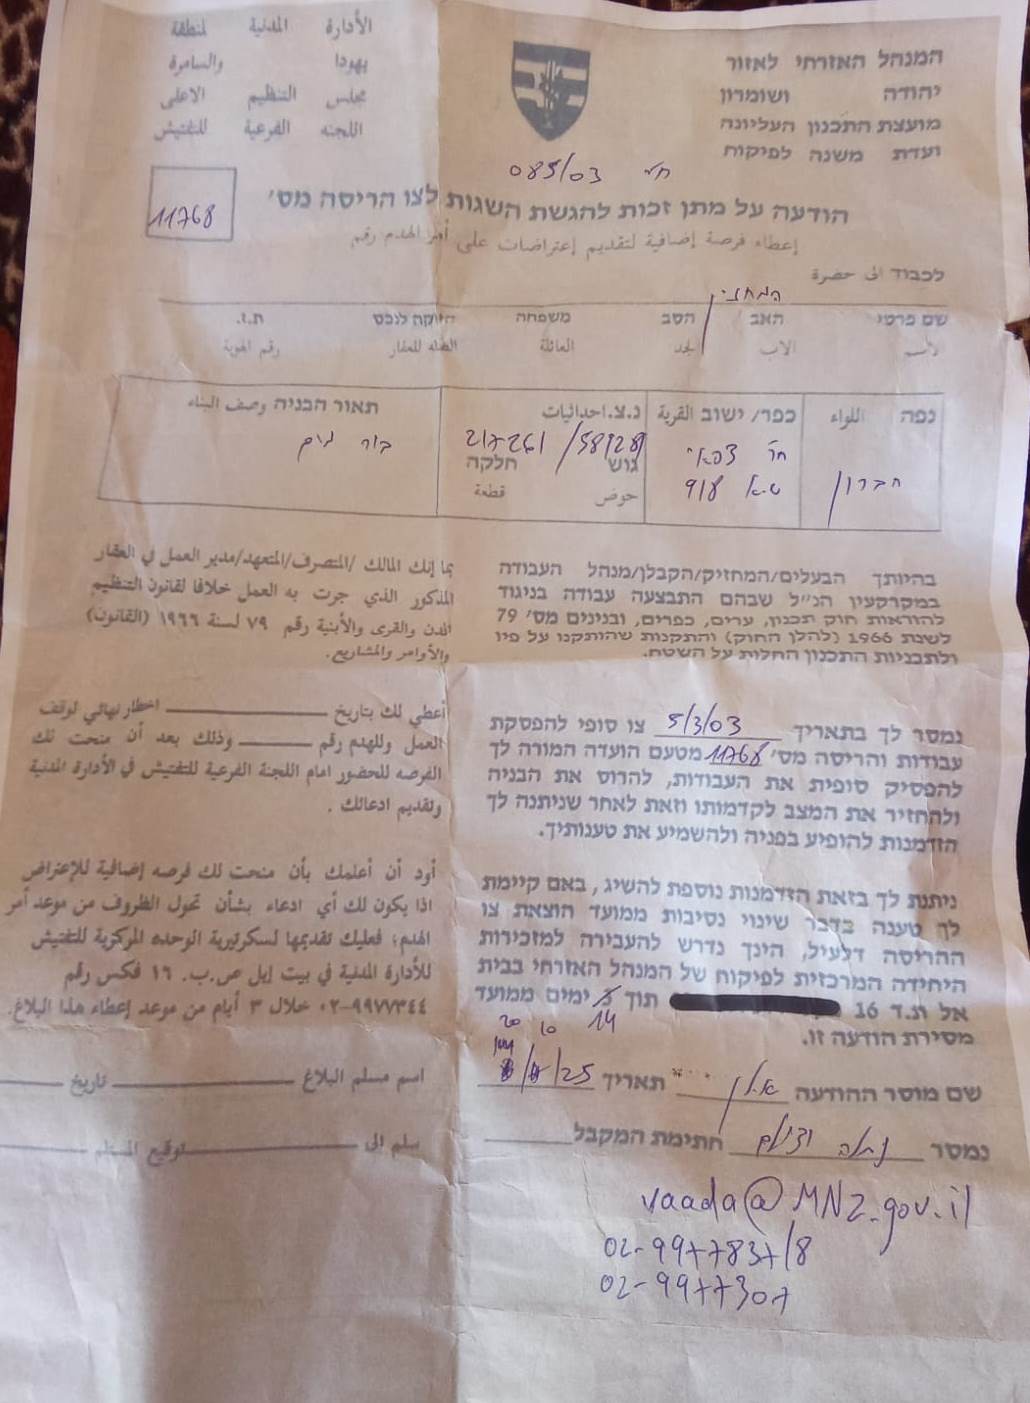 המנהל האזרחי לאזור
יהודה ושומרון
מועצת התכנון העליונה
ועדת משנה לפיקוח
الأدارة المدنية لمنطقة
يهودا والسامرة
مجلس التنظيم الاعلى
اللجنه الفرعية للتفتيش
085/03
הודעה על מתן זכות להגשת השגות לצו הריסה מס'
11768
إعطاء فرصة إضافية لتقديم إعتراضات على أمر الهدم رقم
לכבוד الى حضرة
המחזיק
שם פרטי האב הסב משפחה הזיקה לנכס ת.ז.
لأسم الاب الجد العائلة الصله للعقار رقم الهوية
נפה اللواء כפר/ ישוב القرية נ.צ. احداثيات תאור הבניה وصف البناء
חברון
ט.א 918
גוש חלקה
حوض قطعة
בור מים
בהיותך הבעלים/המחזיק/הקבלן/מנהל העבודה
במקרקעין הנ"ל שבהם התבצעה עבודה בניגוד
להוראות חוק תכנון, ערים, כפרים, ובנינים מס' 79
לשנת 1966 (להלן החוק) והתקנות שהותקנו על פיו
ולתכניות התכנון החלות על השטח.
بما إنك المالك /المتصرف/المتعهد/مدير العمل في العقار
المذكور الذي جرت به العمل خلافا لقانون التنظيم
المدن والقرى والأبنية رقم ٧٩ لسنة ١٩٦٦ (القانون)
والأوامر والمشاريع.
נמסר לך בתאריך 5/3/03 צו סופי להפסקת
עבודות והריסה מס' 11768 מטעם הועדה המורה לך
להפסיק סופית את העבודות, להרוס את הבניה
ולהחזיר את המצב לקדמותו וזאת לאחר שניתנה לך
הזדמנות להופיע בפניה ולהשמיע את טענותיך.
أعطي لك بتاريخ اخطار نهائي لوقف
العمل وللهدم رقم وذلك بعد أن منحت لك
الفرصه للحضور امام اللجنة الفرعية للتفتيش في الأدارة المدنية
وتقديم ادعائك .
ניתנת לך בזאת הזדמנות נוספת להשיג, באם קיימת
לך טענה בדבר שינוי נסיבות ממועד הוצאת צו
ההריסה דלעיל, הינך נדרש להעבירה למזכירות
היחידה המרכזית לפיקוח של המנהל האזרחי בבית
אל ת.ד 16 תוך 14 ימים ממועד
מסירת הודעה זו.
أود أن أعلمك بأن منحت لك فرصه إضافية للإعتراض
اذا يكون لك أي ادعاء بشأن تحول الظروف من موعد أمر
الهدم؛ فعليك تقديمها لسكرتيرية الوحده المركزية للتفتيش
للأدارة المدنية في بيت إيل ص.ب. ١٦ فكس رقم
٩٩٧٧٣٤٤-٠٢ خلال ٣ أيام من موعد إعطاء هذا البلاغ.
20 10
שם מוסר ההודעה אילן תאריך 25
اسم مسلم البلاغ تاريخ
נמסר חתימת המקבל
سلم الى توقيع المستلم
vaada@MNZ.gov.il
02-9977837/8
02-9977307